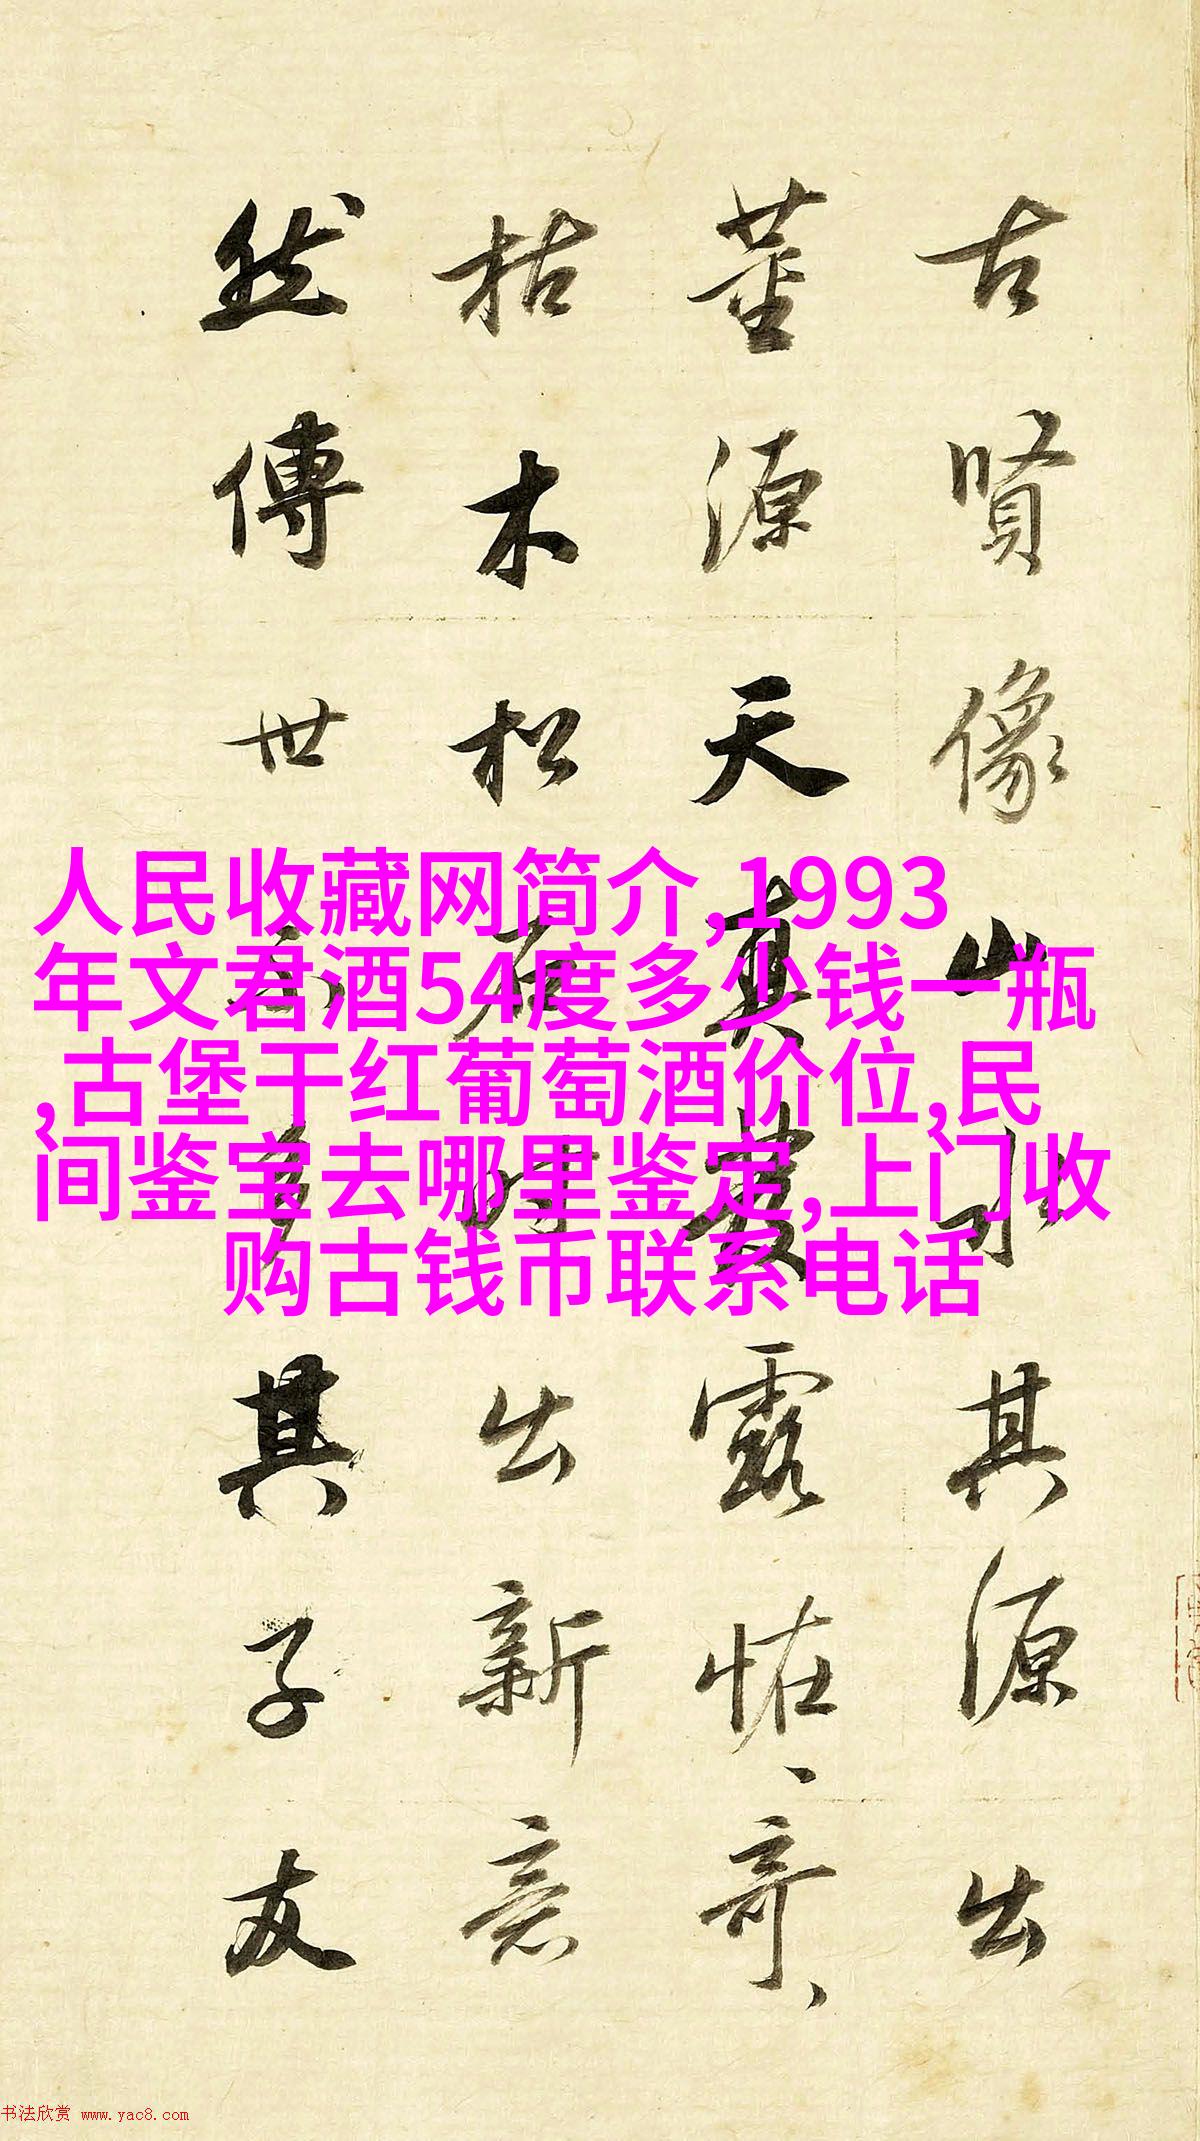 古賢像山水其源出
董源天真叢露恠奇
枯木松石時出新意
然傳世不多其子友
人民收藏网简介,1993
年文君酒54度多少钱一瓶
,古堡干红葡萄酒价位,民
间鉴宝去哪里鉴定,上门收
购古钱币联系电话
书法欣赏 www.yac8.com